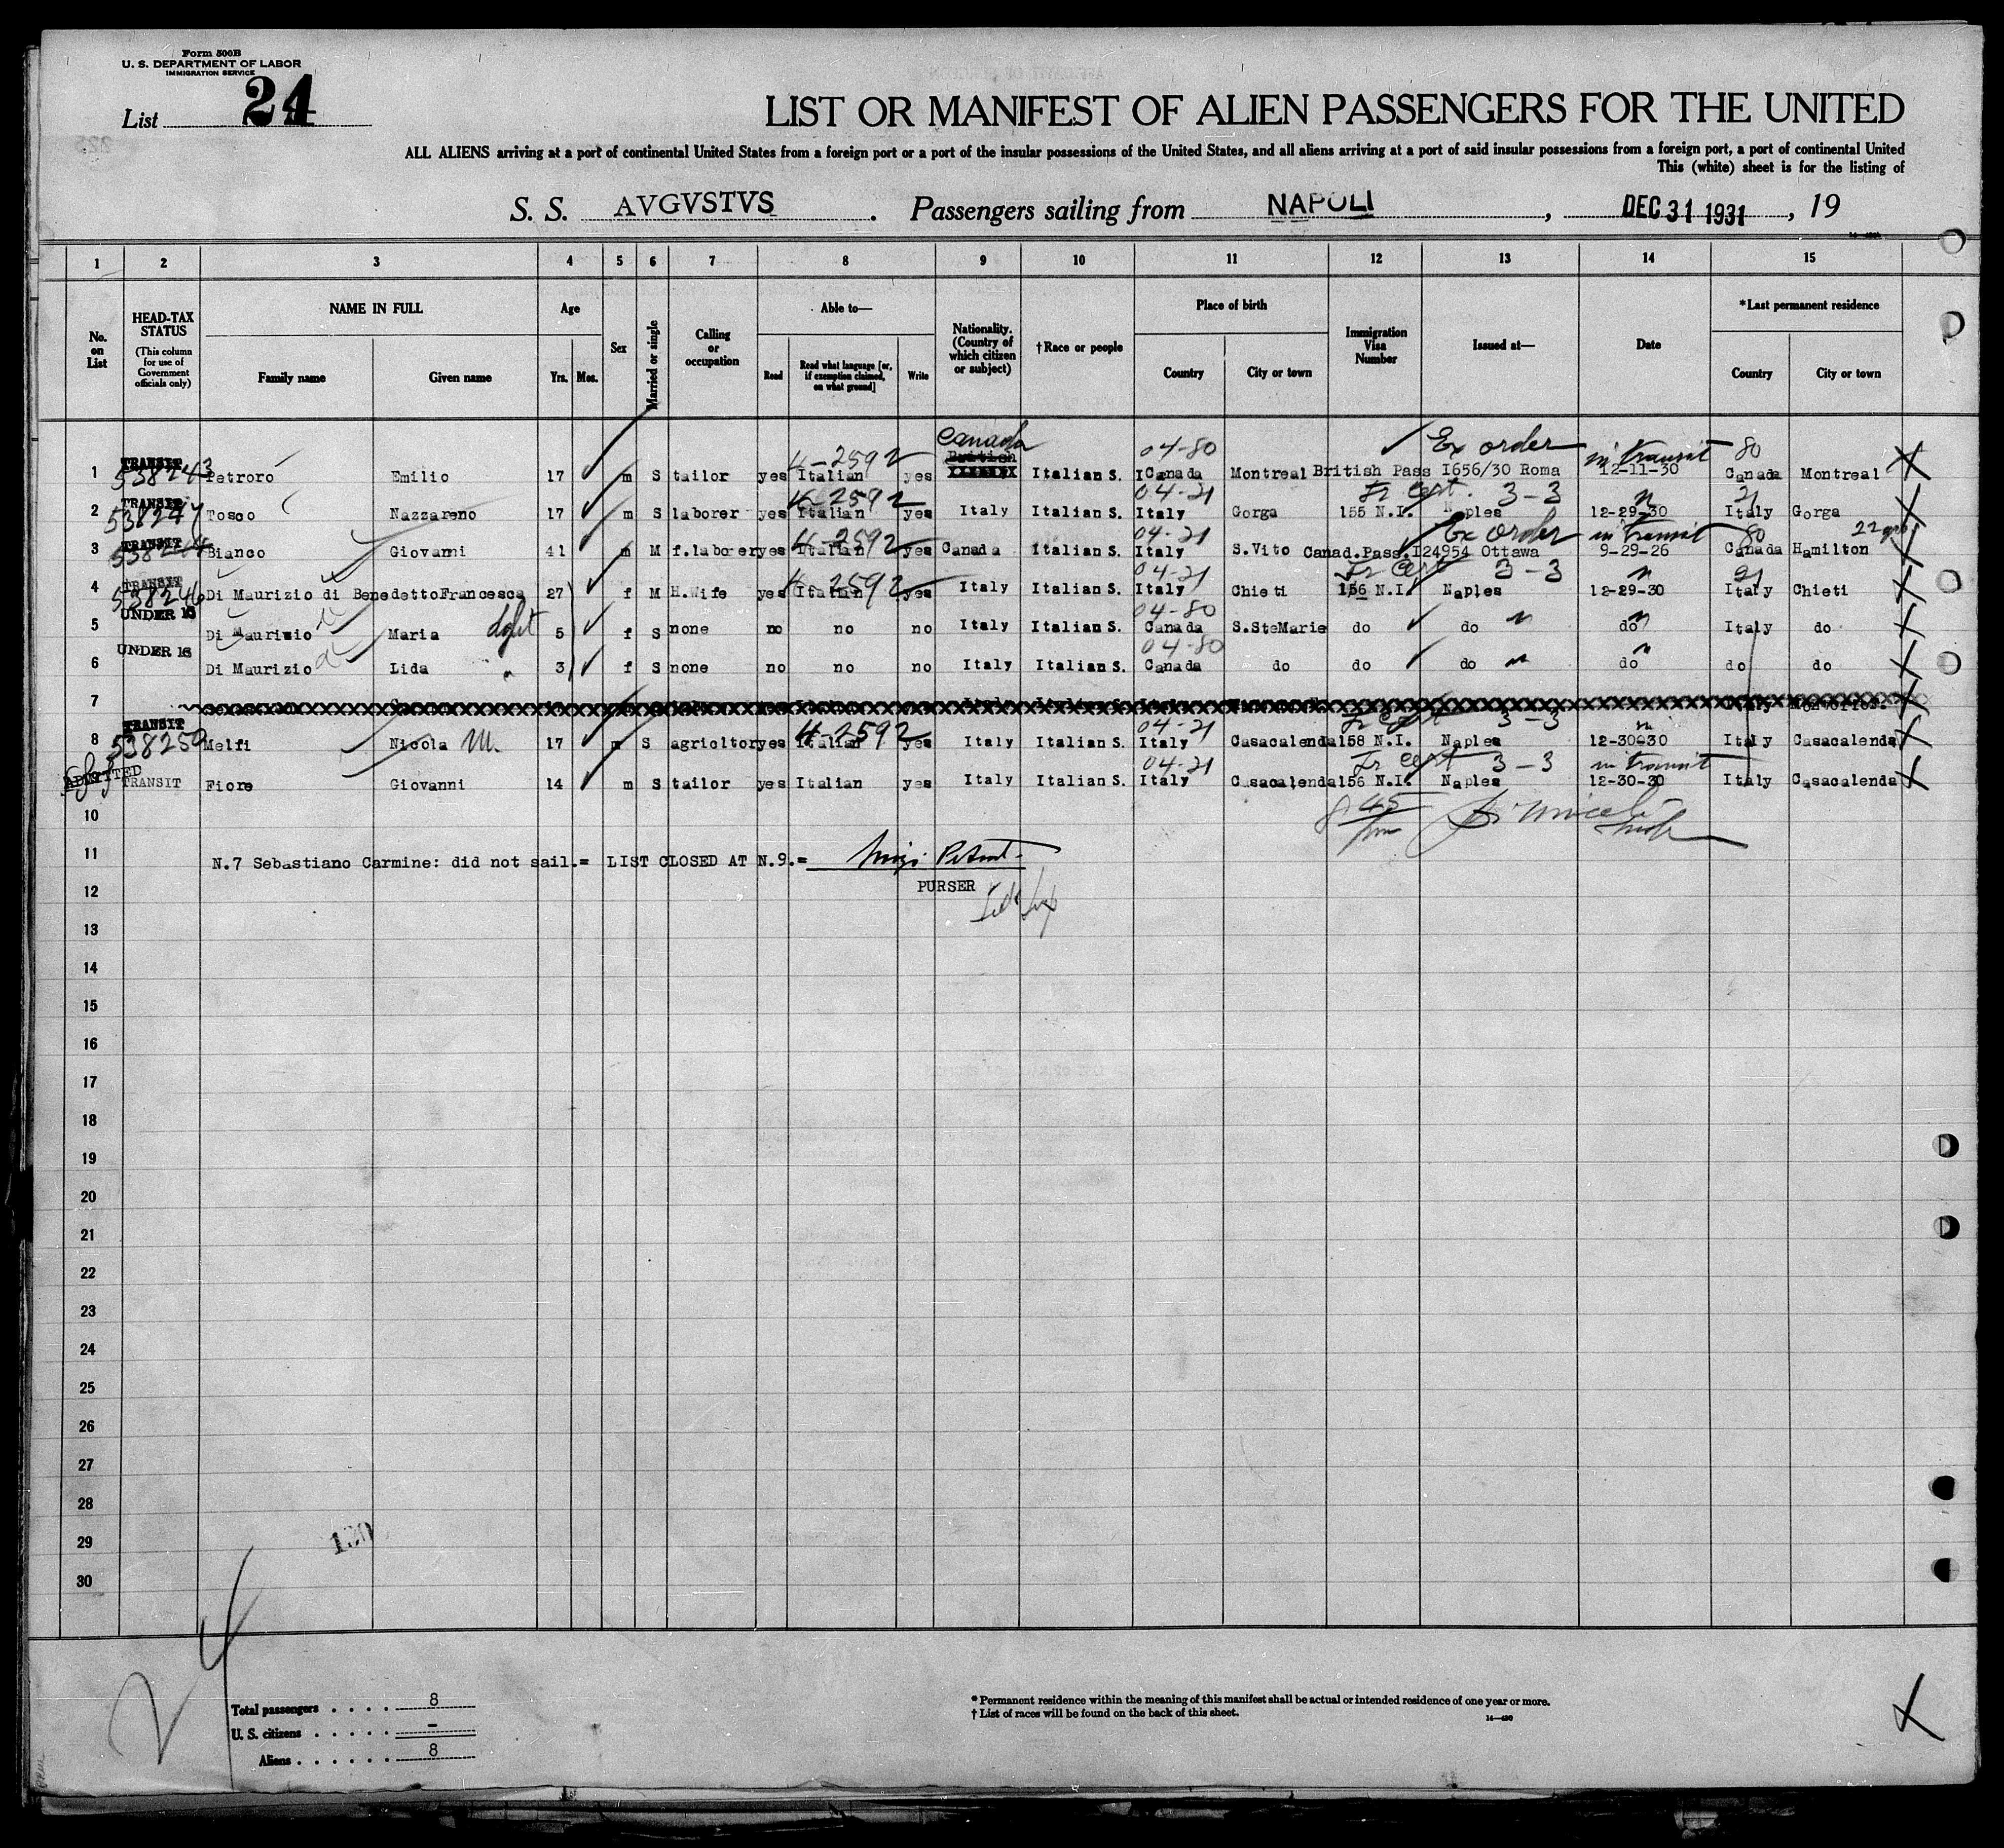 Form 500B
U. S. DEPARTMENT OF LABOR
IMMIGRATION SERVICE
List 24
LIST OR MANIFEST OF ALIEN PASSENGERS FOR THE UNITED
ALL ALIENS arriving at a port of continental United States from a foreign port or a port of the insular possessions of the United States, and all aliens arriving at a port of said insular possessions from a foreign port, a port of continental United
This (white) sheet is for the listing of
S. S. AVGVSTVS. Passengers sailing from NAPOLI, DEC 31 1931, 19
1 2 3 4 5 6 7 8 9 10 11 12 13 14 15
No. on List
HEAD-TAX STATUS (This column for use of Government officials only)
NAME IN FULL Family name Given name
Age Yrs. Mos.
Sex
Married or single
Calling or occupation
Able to— Read Read what language [or, if exemption claimed, on what ground] Write
Nationality. (Country of which citizen or subject)
†Race or people
Place of birth Country City or town
Immigration Visa Number
Issued at—
Date
*Last permanent residence Country City or town
Canada 04-80 Ex order in transit 80
1 TRANSIT 538243 Petroro Emilio 17 m S tailor yes 4-2592 Italian yes British Italian S. ICanada Montreal British Pass I656/30 Roma 12-11-30 Canada Montreal
04-21 Tr Cert. 3-3 21
2 TRANSIT 538247 Tosco Nazzareno 17 m S laborer yes 4-2592 Italian yes Italy Italian S. Italy Gorga 155 N.I. Naples 12-29-30 Italy Gorga
04-21 Ex order in transit 80
3 TRANSIT Bianco Giovanni 41 m M f.laborer yes 4-2592 Italian yes Canada Italian S. Italy S.Vito Canad.Pass.I24954 Ottawa 9-29-26 Canada Hamilton
04-21 Tr Cert 3-3 21
4 TRANSIT 538246 Di Maurizio di Benedetto Francesca 27 f M H.Wife yes 4-2592 Italian yes Italy Italian S. Italy Chieti 156 N.I. Naples 12-29-30 Italy Chieti
04-80
5 UNDER 16 Di Maurizio Maria 5 f S none no no no Italy Italian S. Canada S.SteMarie do do do Italy do
04-80
6 UNDER 16 Di Maurizio Lida " 3 f S none no no no Italy Italian S. Canada do do do do do do
7
04-21 Tr Cert 3-3
8 TRANSIT 538250 Melfi Nicola M. 17 m S agricltor yes 4-2592 Italian yes Italy Italian S. Italy Casacalenda 158 N.I. Naples 12-30-30 Italy Casacalenda
04-21 Tr Cert 3-3 in transit
ADMITTED TRANSIT Fiore Giovanni 14 m S tailor yes Italian yes Italy Italian S. Italy Casacalenda 156 N.I. Naples 12-30-30 Italy Casacalenda
10
11 N.7 Sebastiano Carmine: did not sail.= LIST CLOSED AT N.9.=
PURSER
12
13
14
15
16
17
18
19
20
21
22
23
24
25
26
27
28
29
30
Total passengers . . . . 8
U. S. citizens . . . . . –
Aliens . . . . . . 8
* Permanent residence within the meaning of this manifest shall be actual or intended residence of one year or more.
† List of races will be found on the back of this sheet.